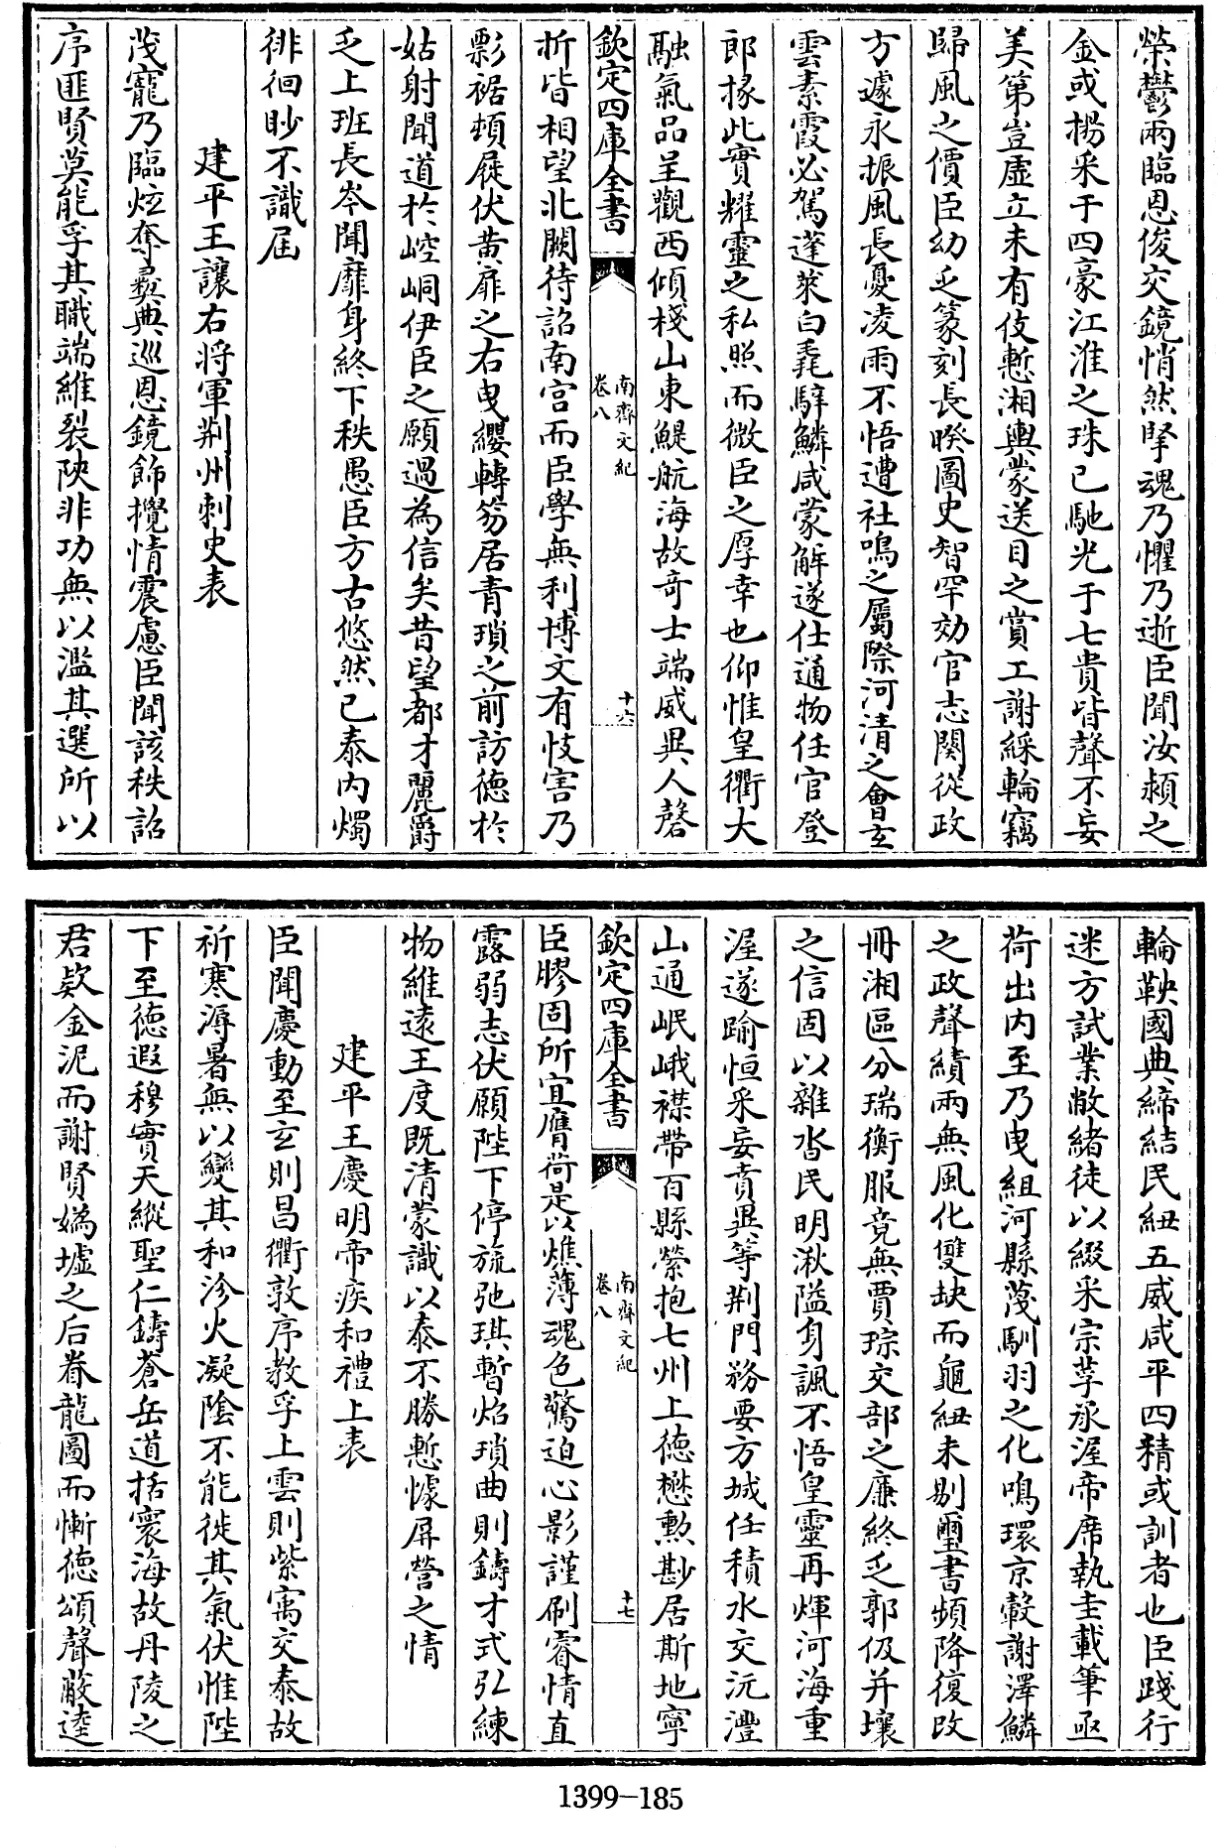 榮鬱兩臨恩俊交鏡悄然孚魂乃懼乃逝臣聞汝潁之
金或揚采于四豪江淮之珠已馳光于七貴皆聲不妄
美第豈虛立未有伎慙湘輿蒙送目之賞工謝綵輪竊
歸風之價臣幼乏篆刻長暌圖史智罕効官志闕從政
方遽永振風長憂凌雨不悟遭社鳴之屬際河清之會玄
雲素霞必駕蓬萊白毳騂鱗咸蒙解遂仕通物任官登
郎掾此實耀靈之私照而微臣之厚幸也仰惟皇衢大
融氣品呈觀西傾棧山東鯷航海故奇士端威異人磬
欽定四庫全書
南齊文紀
卷八
十六
折皆相望北闕待詔南宮而臣學無利博文有忮害乃
影裾頓屣伏黄扉之右曳纓轉笏居青瑣之前訪德於
姑射聞道於崆峒伊臣之願過為信矣昔望都才麗爵
乏上班長岑聞靡身終下秩愚臣方古悠然已泰内燭
徘徊眇不識屆
建平王讓右將軍荆州刺史表
茂寵乃臨炫奪彛典巡恩鏡飾攪情震慮臣聞該秩詔
序匪賢莫能孚其職端維裂陜非功無以濫其選所以
輪鞅國典締結民紐五威咸平四精或訓者也臣踐行
迷方試業敝緒徒以綴采宗莩承渥帝席執圭載筆亟
荷出内至乃曳組河縣茂馴羽之化鳴環京轂謝澤鱗
之政聲績兩無風化雙缺而龜紐未剔璽書頻降復改
冊湘區分瑞衡服竟無賈琮交部之廉終乏郭伋并壤
之信固以雜沓民明湫隘身諷不悟皇靈再煇河海重
渥遂踰恒采妄賁異等荆門務要方城任積水交沅灃
山通岷峨襟帶百縣縈抱七州上德懋勲尠居斯地寧
欽定四庫全書
南齊文紀
卷八
十七
臣膠固所宜膺荷是以燋薄魂色驚迫心影謹刷睿情直
露弱志伏願陛下停旒弛琪暫焰瑣曲則鑄才式弘練
物維遠王度既清蒙識以泰不勝慙懅屏營之情
建平王慶明帝疾和禮上表
臣聞慶動至玄則昌衢敦序教孚上雲則紫寓交泰故
祈寒溽暑無以變其和沴火凝隂不能徙其氣伏惟陛
下至徳遐穆實天縱聖仁鑄蒼岳道括寰海故丹陵之
君欵金泥而謝賢嬀墟之后眷龍圖而慚德頌聲蔽逵
1399-185